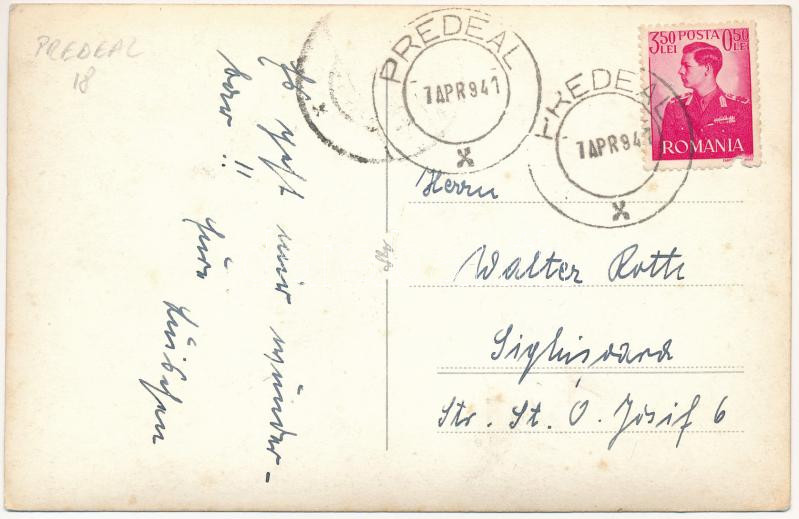 PREDEAL
18
PREDEAL
7 APR 941
X
PREDEAL
7 APR 941
X
350 LEI POSTA 0.50 LEI
ROMANIA
Es geht mir wunder-
bar !!
Eure
Luischen
Herrn
Walter Roth
Sighisoara
Str. St. O. Josif 6